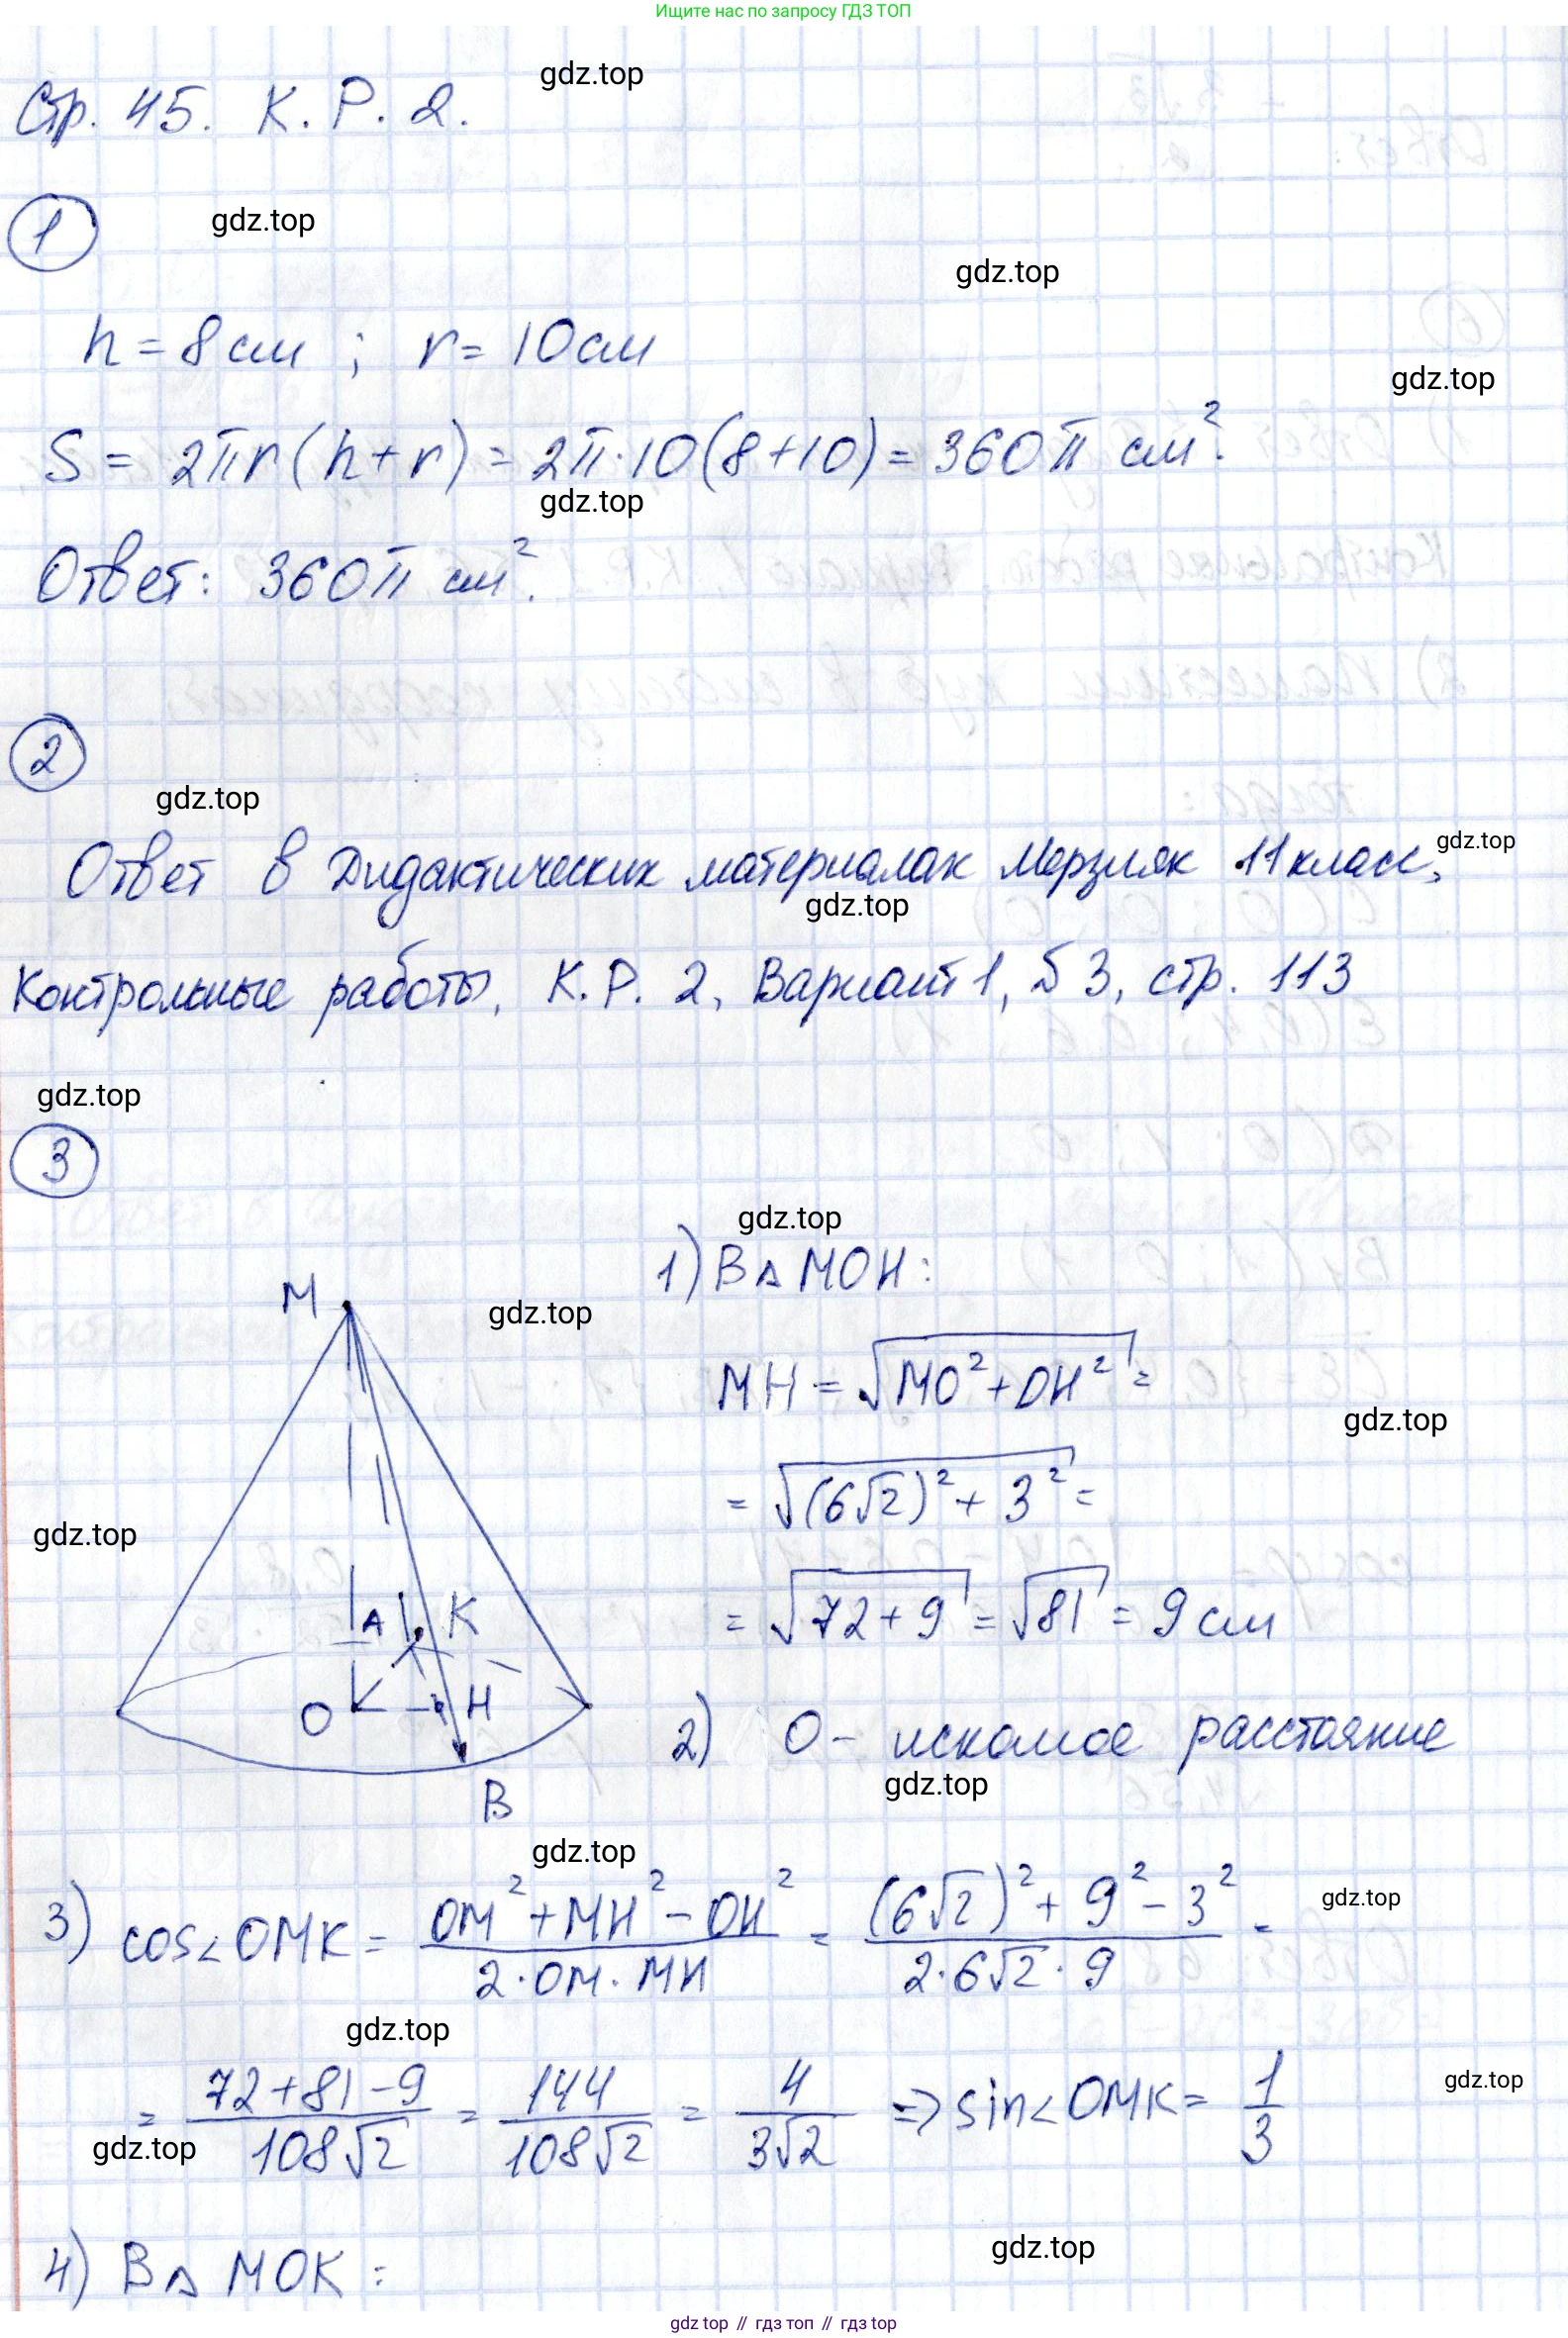 Ищите нас по запросу ГДЗ ТОП
gdz.top
Стр. 45. К. Р. 2.
1
gdz.top
gdz.top
h = 8 см ; r = 10 см
gdz.top
S = 2πr(h+r) = 2π·10(8+10) = 360π см².
gdz.top
Ответ: 360π см².
2
gdz.top
Ответ в Дидактических материалах Мерзляк 11 класс,
gdz.top
gdz.top
Контрольные работы, К.Р. 2, Вариант 1, №3, стр. 113
gdz.top
3
gdz.top
1) В △ MOH:
M
gdz.top
MH = √(MO² + OH²) =
gdz.top
= √((6√2)² + 3²) =
gdz.top
= √(72+9) = √81 = 9 см
A K
O H
2) O - искомое расстояние
gdz.top
B
gdz.top
3) cos∠OMK = (OM² + MH² - OH²)/(2·OM·MH) = ((6√2)² + 9² - 3²)/(2·6√2·9) =
gdz.top
gdz.top
= (72+81-9)/(108√2) = 144/(108√2) = 4/(3√2) => sin∠OMK = 1/3
gdz.top
gdz.top
4) В △ MOK:
gdz.top
gdz top // гдз топ // гдз.top